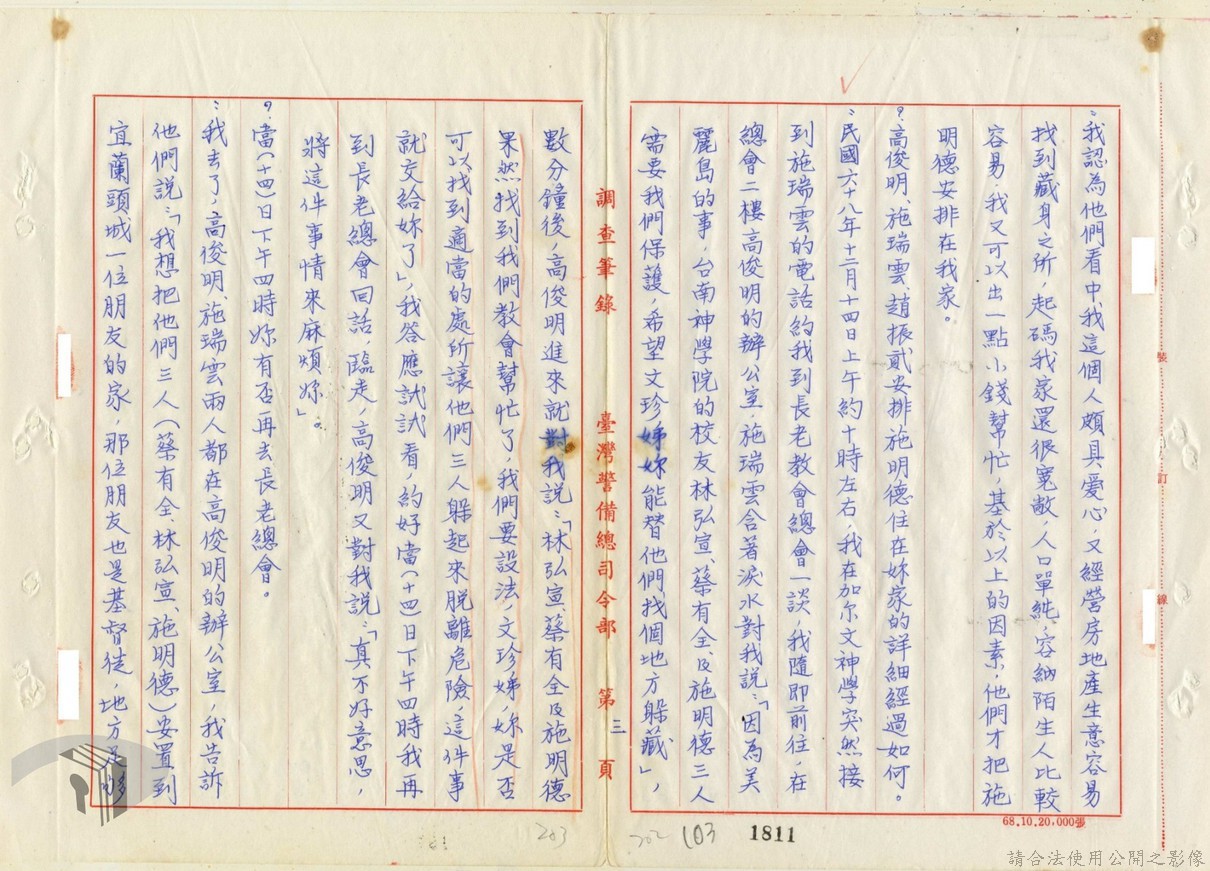 ：我認為他們看中我這個人頗具愛心，又經營房地產生意容易
找到藏身之所，起碼我家還很寬敞，人口單純，容納陌生人比較
容易，我又可以出一點小錢幫忙，基於以上的因素，他們才把施
明德安排在我家。
？高俊明、施瑞雲、趙振貳安排施明德住在妳家的詳細經過如何。
：民國六十八年十二月十四日上午約十時左右，我在加尔文神學突然接
到施瑞雲的電話約我到長老教會總會一談，我隨即前往，在
總會二樓高俊明的辦公室，施瑞雲含著淚水對我說：「因為美
麗島的事，台南神學院的校友林弘宣、蔡有全、及施明德三人
需要我們保護，希望文珍姊妳能替他們找個地方躲藏」，
調查筆錄 臺灣警備總司令部 第三頁
數分鐘後，高俊明進來就對我說：「林弘宣、蔡有全及施明德
果然找到我們教會幫忙了，我們要設法，文珍姊，妳是否
可以找到適當的處所讓他們三人躲起來脫離危險，這件事
就交給妳了」，我答應試試看，約好當(十四)日下午四時我再
到長老總會回話，臨走，高俊明又對我說：「真不好意思，
將這件事情來麻煩妳」。
？當(十四)日下午四時妳有否再去長老總會。
：我去了，高俊明、施瑞雲兩人都在高俊明的辦公室，我告訴
他們說：「我想把他們三人(蔡有全、林弘宣、施明德)安置到
宜蘭頭城一位朋友的家，那位朋友也是基督徒，地方足夠
裝
訂
線
68.10.20,000張
203
202
103
1811
請合法使用公開之影像